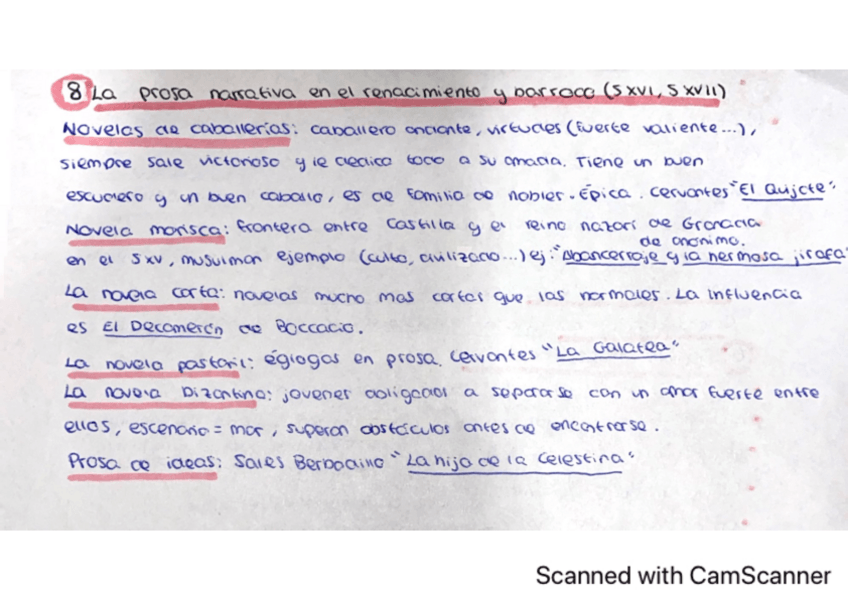 8 La prosa narrativa en el renacimiento y barroco (S XVI, S XVII)
Novelas de caballerías: caballero andante, virtudes (fuerte valiente...),
siempre sale victorioso y le dedica todo a su amada. Tiene un buen
escudero y un buen caballo, es de familia de nobles. Épica. Cervantes "El Quijote".
Novela morisca: frontera entre Castilla y el reino nazarí de Granada
de anonimo.
en el S XV, musulman ejemplo (culto, civilizado...) ej: "Abancerraje y la hermosa jirafa"
La novela corta: novelas mucho mas cortas que las normales. La influencia
es El Decamerón de Boccacio.
La novela pastoril: églogas en prosa. Cervantes "La Galatea"
La novela Bizantina: jovenes obligados a separarse con un amor fuerte entre
ellos, escenario = mar, superan obstáculos antes de encontrarse.
Prosa de ideas: Sales Berbadillo "La hija de la Celestina"
Scanned with CamScanner